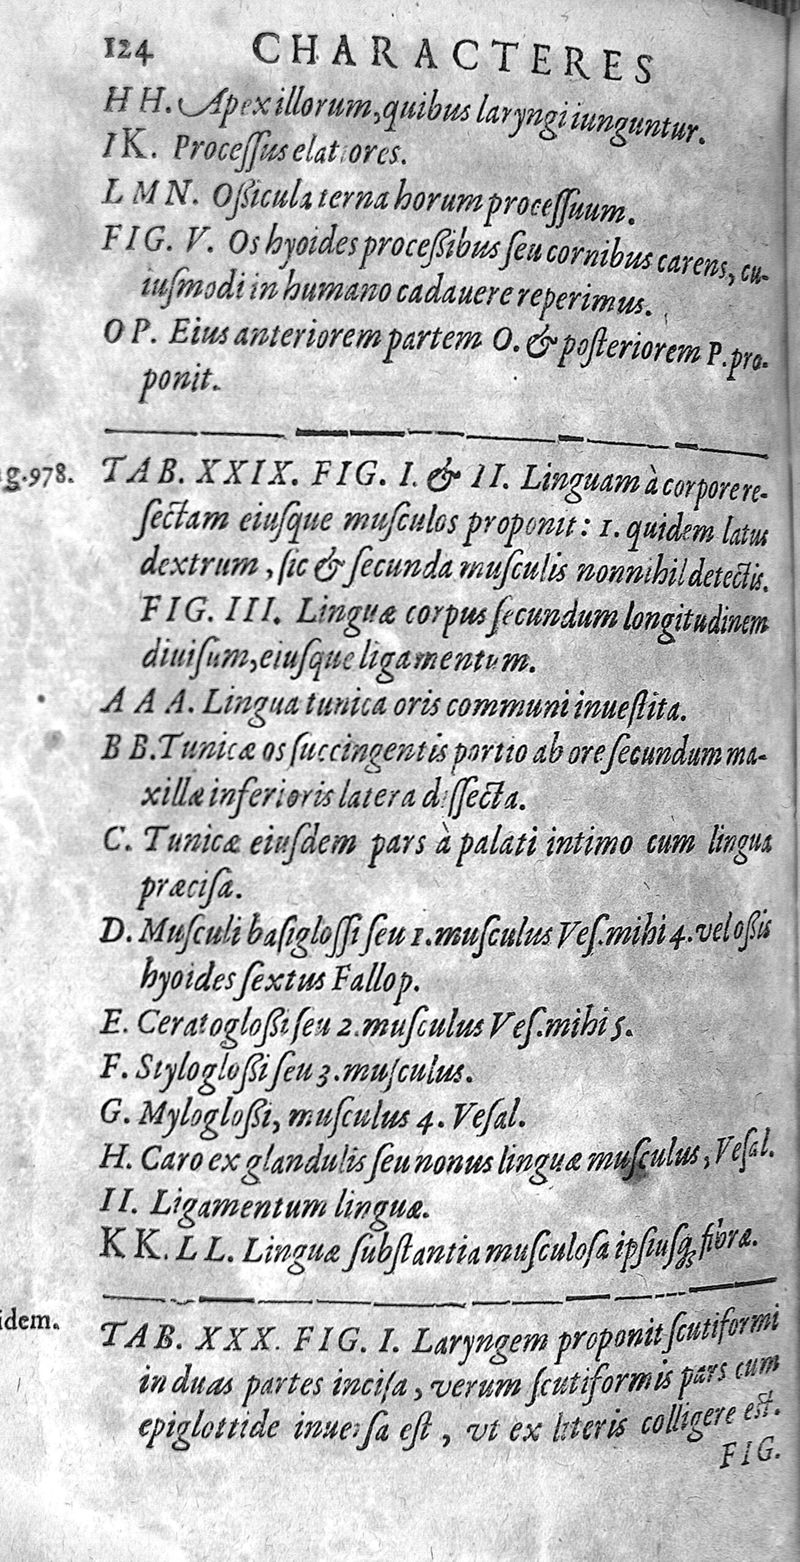 124 CHARACTERES
H H. Apex illorum, quibus laryngi iunguntur.
I K. Proceſſus elatiores.
L M N. Oſsicula terna horum proceſſuum.
FIG. V. Os hyoides proceſsibus ſeu cornibus carens, cu-
iuſmodi in humano cadauere reperimus.
O P. Eius anteriorem partem O. & poſteriorem P. pro-
ponit.
g. 978.
TAB. XXIX. FIG. I. & II. Linguam à corpore re-
ſectam eiuſque muſculos proponit: 1. quidem latus
dextrum, ſic & ſecunda muſculis nonnihil detectis.
FIG. III. Linguæ corpus ſecundum longitudinem
diuiſum, eiuſque ligamentum.
A A A. Lingua tunica oris communi inueſtita.
B B. Tunicæ os ſuccingentis portio ab ore ſecundum ma-
xillæ inferioris latera diſſecta.
C. Tunicæ eiuſdem pars à palati intimo cum lingua
præciſa.
D. Muſculi baſigloſſi ſeu 1. muſculus Veſ. mihi 4. vel oſsis
hyoides ſextus Fallop.
E. Ceratogloſsi ſeu 2. muſculus Veſ. mihi 5.
F. Stylogloſsi ſeu 3. muſculus.
G. Mylogloſsi, muſculus 4. Veſal.
H. Caro ex glandulis ſeu nonus linguæ muſculus, Veſal.
I I. Ligamentum linguæ.
K K. L L. Linguæ ſubſtantia muſculoſa ipſiuſq; fibræ.
idem.
TAB. XXX. FIG. I. Laryngem proponit ſcutiformi
in duas partes inciſa, verum ſcutiformis pars cum
epiglottide inuerſa eſt, vt ex literis colligere eſt.
FIG.